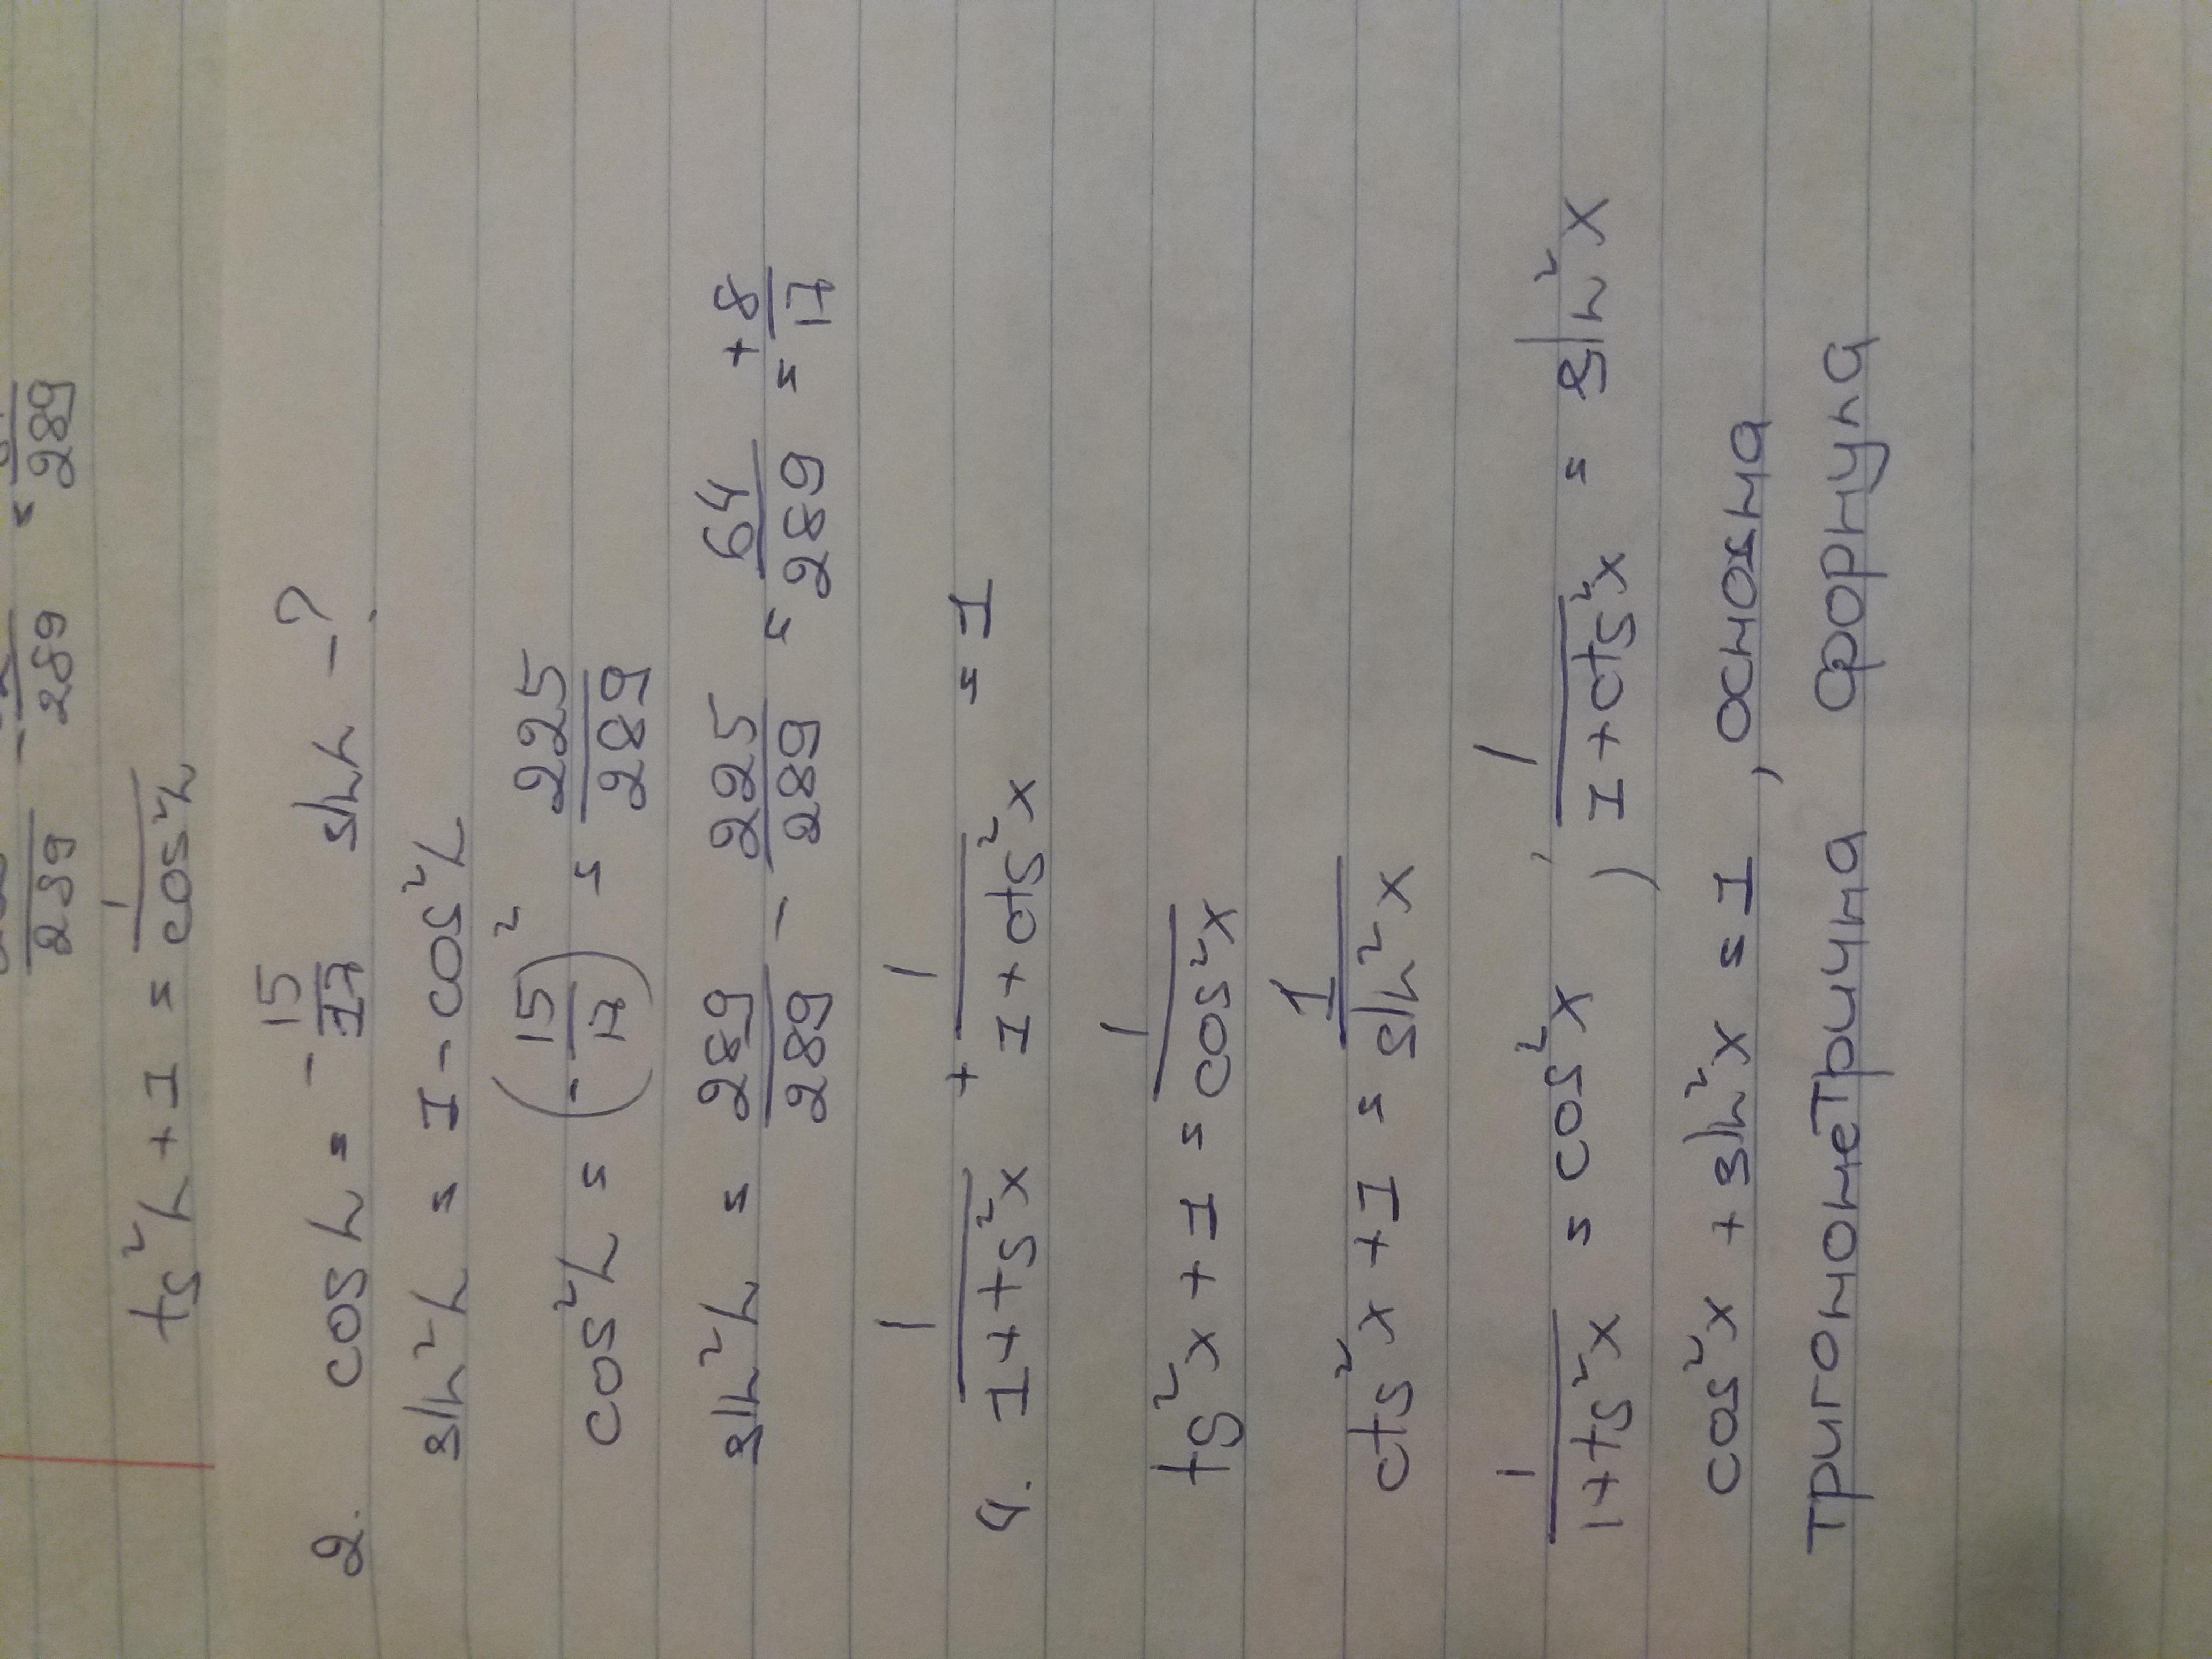 289 289 = 289
tg²α + 1 = 1/cos²α
2. cos α = -15/17 sin α - ?
sin²α = 1 - cos²α
cos²α = (-15/17)² = 225/289
sin²α = 289/289 - 225/289 = 64/289 = +8/17
4. 1/(1+tg²x) + 1/(1+ctg²x) = 1
tg²x + 1 = 1/cos²x
ctg²x + 1 = 1/sin²x
1/(1+tg²x) = cos²x ; 1/(1+ctg²x) = sin²x
cos²x + sin²x = 1, основна
тригонометрична формула